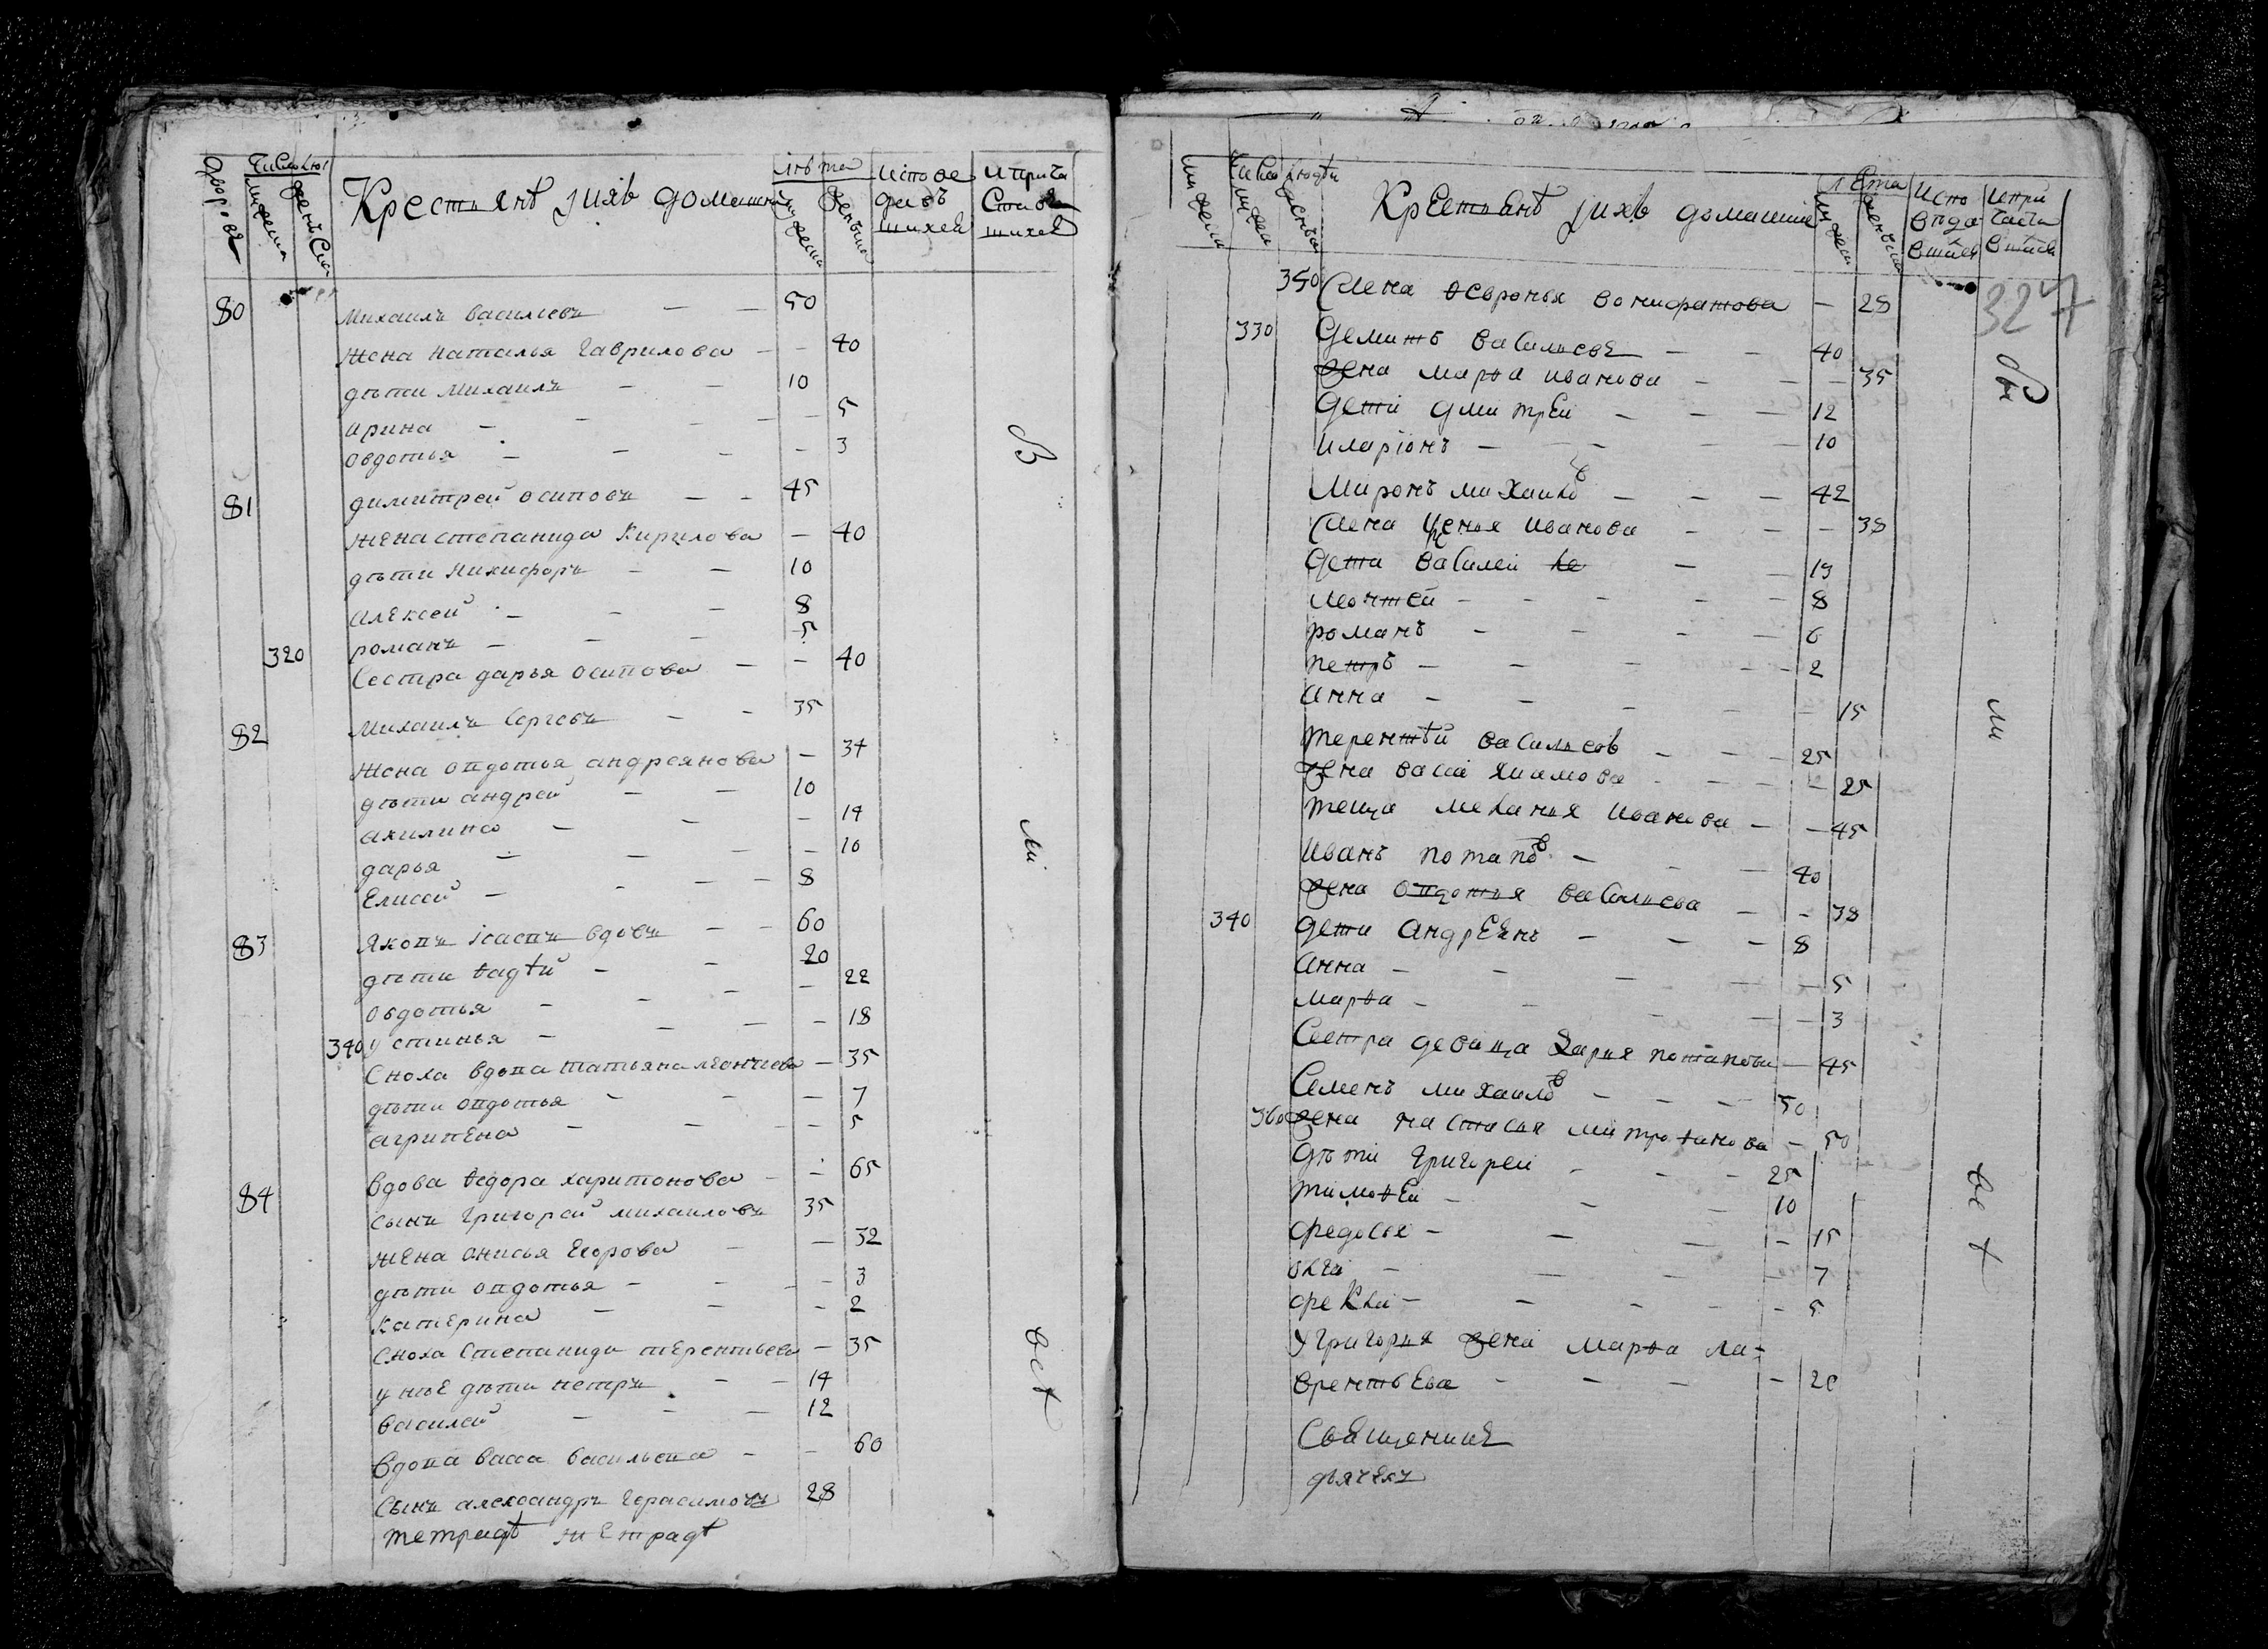 Число лю
дворовъ
мужеска
женска
Крестьянѣ и ихъ домашни
лѣта
мужеска
женска
исповедавъшихся
и причастившихся
80 Михаилъ васильевъ — — 50
жена наталья гаврилова — — 40
дѣти михаилъ — — 10
ирина — — — — 5
овдотья — — — — 3
81 димитрей осиповъ — — 45
жена степанида кирилова — 40
дѣти никифоръ — — 10
алексей — — — 8
романъ — — — 5
320 сестра дарья осипова — — 40
82 михаилъ сергевъ — — 35
жена овдотья андреянова — 34
дѣти андрей — — 10
акилина — — — 14
дарья — — — 10
елисей — — — — 8
83 яковъ вдовъ — — 60
дѣти ѳадѣй — — 20
овдотья — — — — 22
340 устинья — — — — 18
сноха вдова татьяна леонтиева — 35
дѣти овдотья — — — 7
агрипена — — — 5
вдова ѳедора харитонова — — 65
84 сынъ григорей михаиловъ 35
жена анисья егорова — — 32
дѣти овдотья — — — 3
катерина — — — 2
сноха степанида терентьева — 35
у нее дѣти петръ — — 14
василей — — — 12
вдова васса васильева — — 60
сынъ александръ герасимовъ 28
тетрадѣ тетрадѣ
в
ли
всѣ
Число людѣй
Крестьанѣ и ихъ домашние
лѣта
исповѣдавшися
и причаставшися
327
350 жена ѳевронья вонифатова — 28
330 Деминтъ васильевъ — — 40
жена марѳа иванова — — — 35
дети дмитрей — — — 12
иларіонъ — — — 10
миронъ михаилов — — — 42
жена ксенья иванова — — — 38
дети василей — — 19
леонтей — — — — — 8
романъ — — — — 6
петръ — — — — — 2
анна — — — — — 15
терентѣй васильевъ — — — 25
жена 25
теща меланья иванова — — 45
иванъ потапов — — — 40
жена овдотья васильева — — 38
340 дети андреянъ — — — 8
анна — — — — 5
марѳа — — — — 3
сестра девица дарья потапова — 45
семенъ михаилов — — — 50
360 жена настасья митроѳанова — 50
дѣти григорей — — — 25
тимоѳей — — — 10
федосья — — — — 15
олга — — — — 7
фекла — — — — 5
у григорья жена марѳа лаврентьева — — — —
священникъ
дьячекъ
бы
ли
всѣ